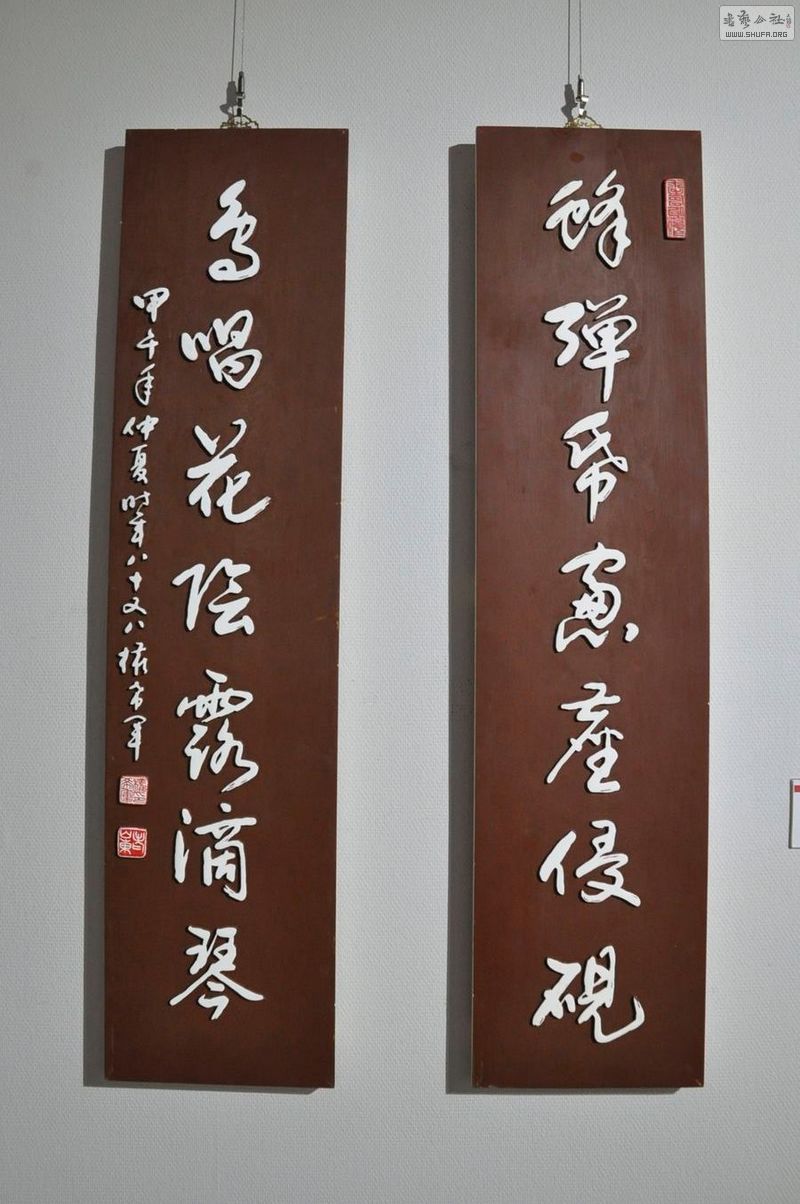 書藝公社
WWW.SHUFA.ORG
蜂彈帋窓塵侵硯
鳥唱花陰露滴琴
甲午年仲夏时年八十又八權希军